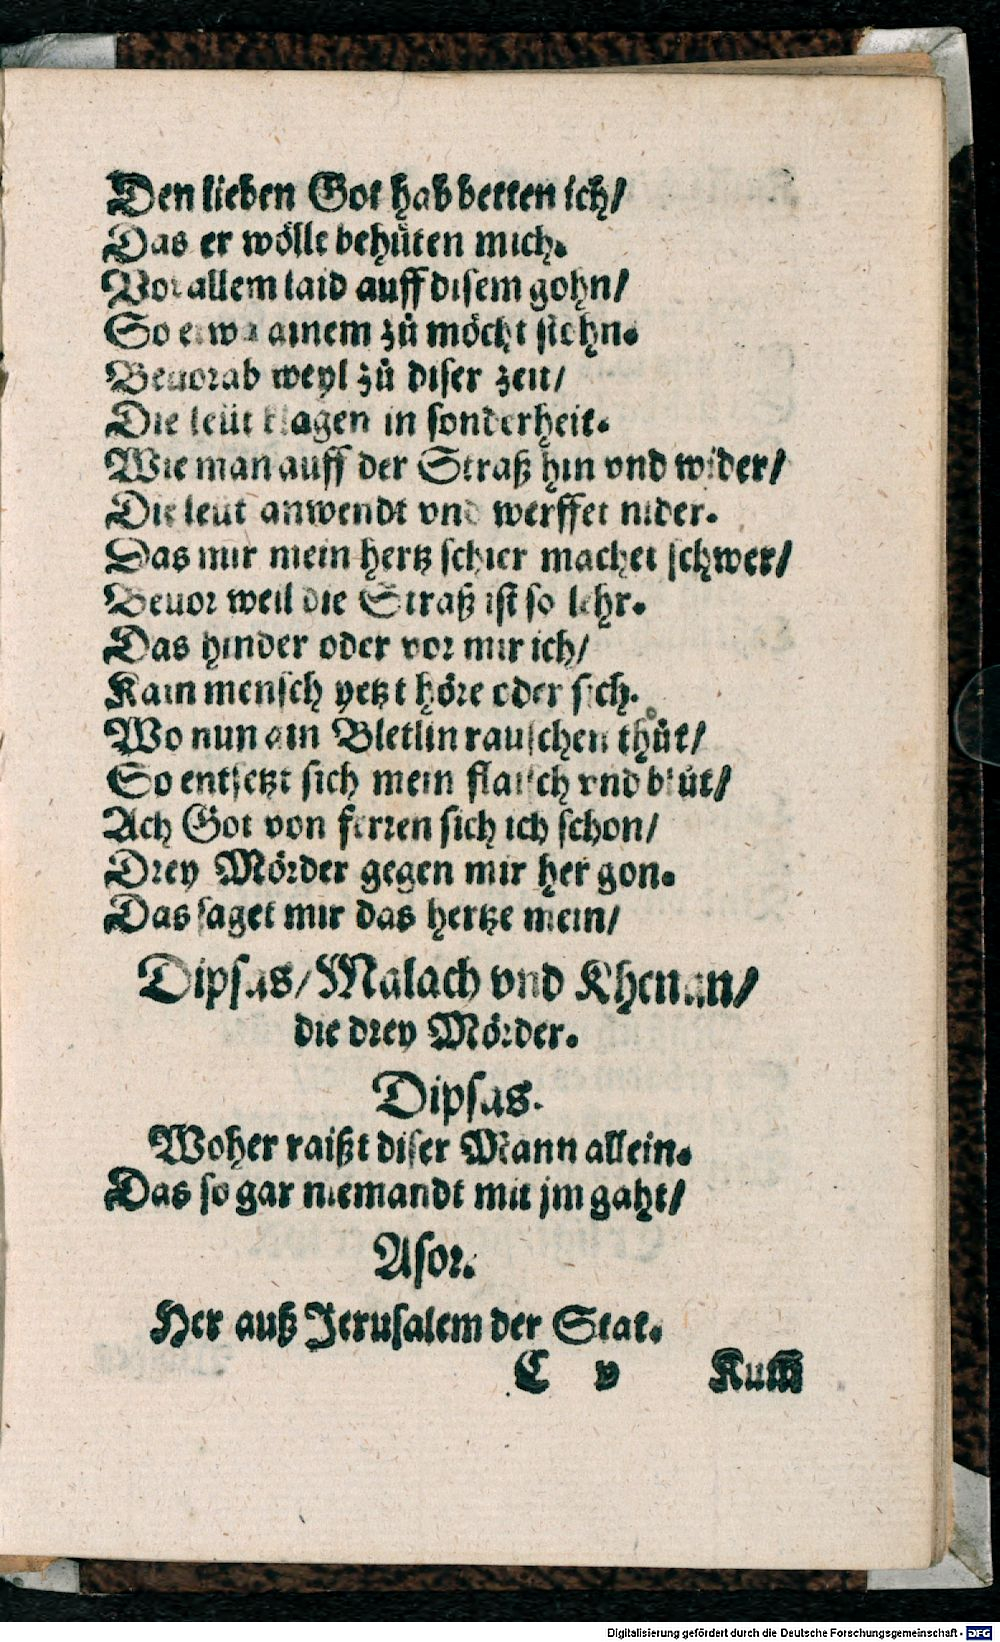 Den lieben Got hab betten ich/
Das er wölle behüten mich.
Vor allem laid auff disem gohn/
So etwa ainem zů möcht stohn.
Beuorab weyl zů diser zeit/
Die leüt klagen in sonderheit.
Wie man auff der Straß hin vnd wider/
Die leüt anwendt vnd werffet nider.
Das mir mein hertz schier machet schwer/
Beuor weil die Straß ist so lehr.
Das hinder oder vor mir ich/
Kain mensch yetzt höre oder sich.
Wo nun ain Bletlin rauschen thůt/
So entsetzt sich mein flaisch vnd blůt/
Ach Got von ferren sich ich schon/
Drey Mörder gegen mir her gon.
Das saget mir das hertze mein/
Dipsas/ Malach vnd Khenan/
die drey Mörder.
Dipsas.
Woher raißt diser Mann allein.
Das so gar niemandt mit jm gaht/
Asor.
Her auß Jerusalem der Stat.
C v
Digitalisierung gefördert durch die Deutsche Forschungsgemeinschaft - DFG